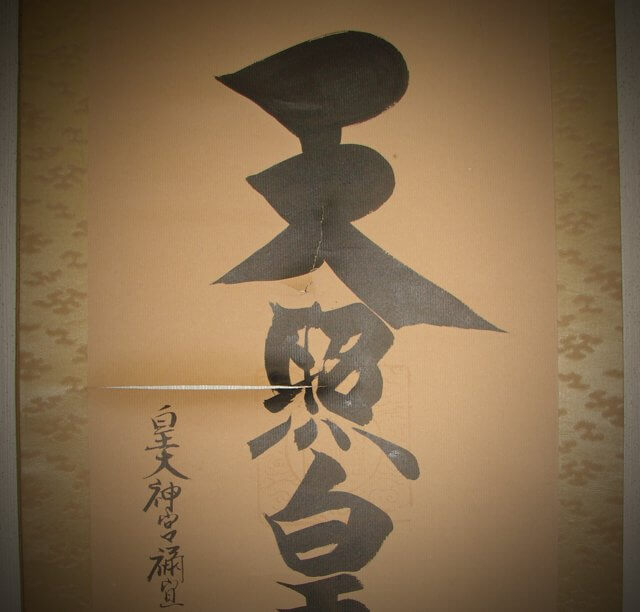 天照皇
皇大神宮祢宜